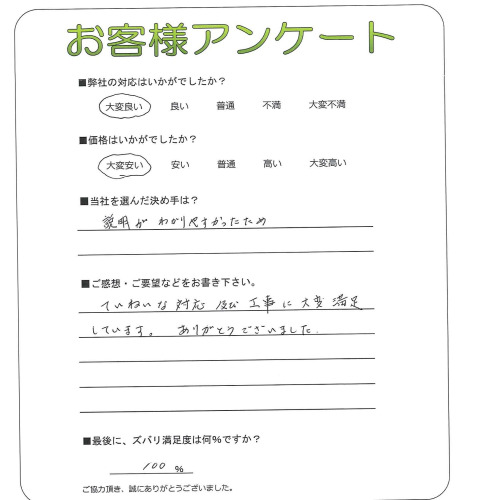 お客様アンケート
■弊社の対応はいかがでしたか？
大変良い 良い 普通 不満 大変不満
■価格はいかがでしたか？
大変安い 安い 普通 高い 大変高い
■当社を選んだ決め手は？
説明が わかりやすかったため
■ご感想・ご要望などをお書き下さい。
ていねいな 対応 及び 工事に 大変 満足
しています。 ありがとうございました.
■最後に、ズバリ満足度は何％ですか？
100 ％
ご協力頂き、誠にありがとうございました。